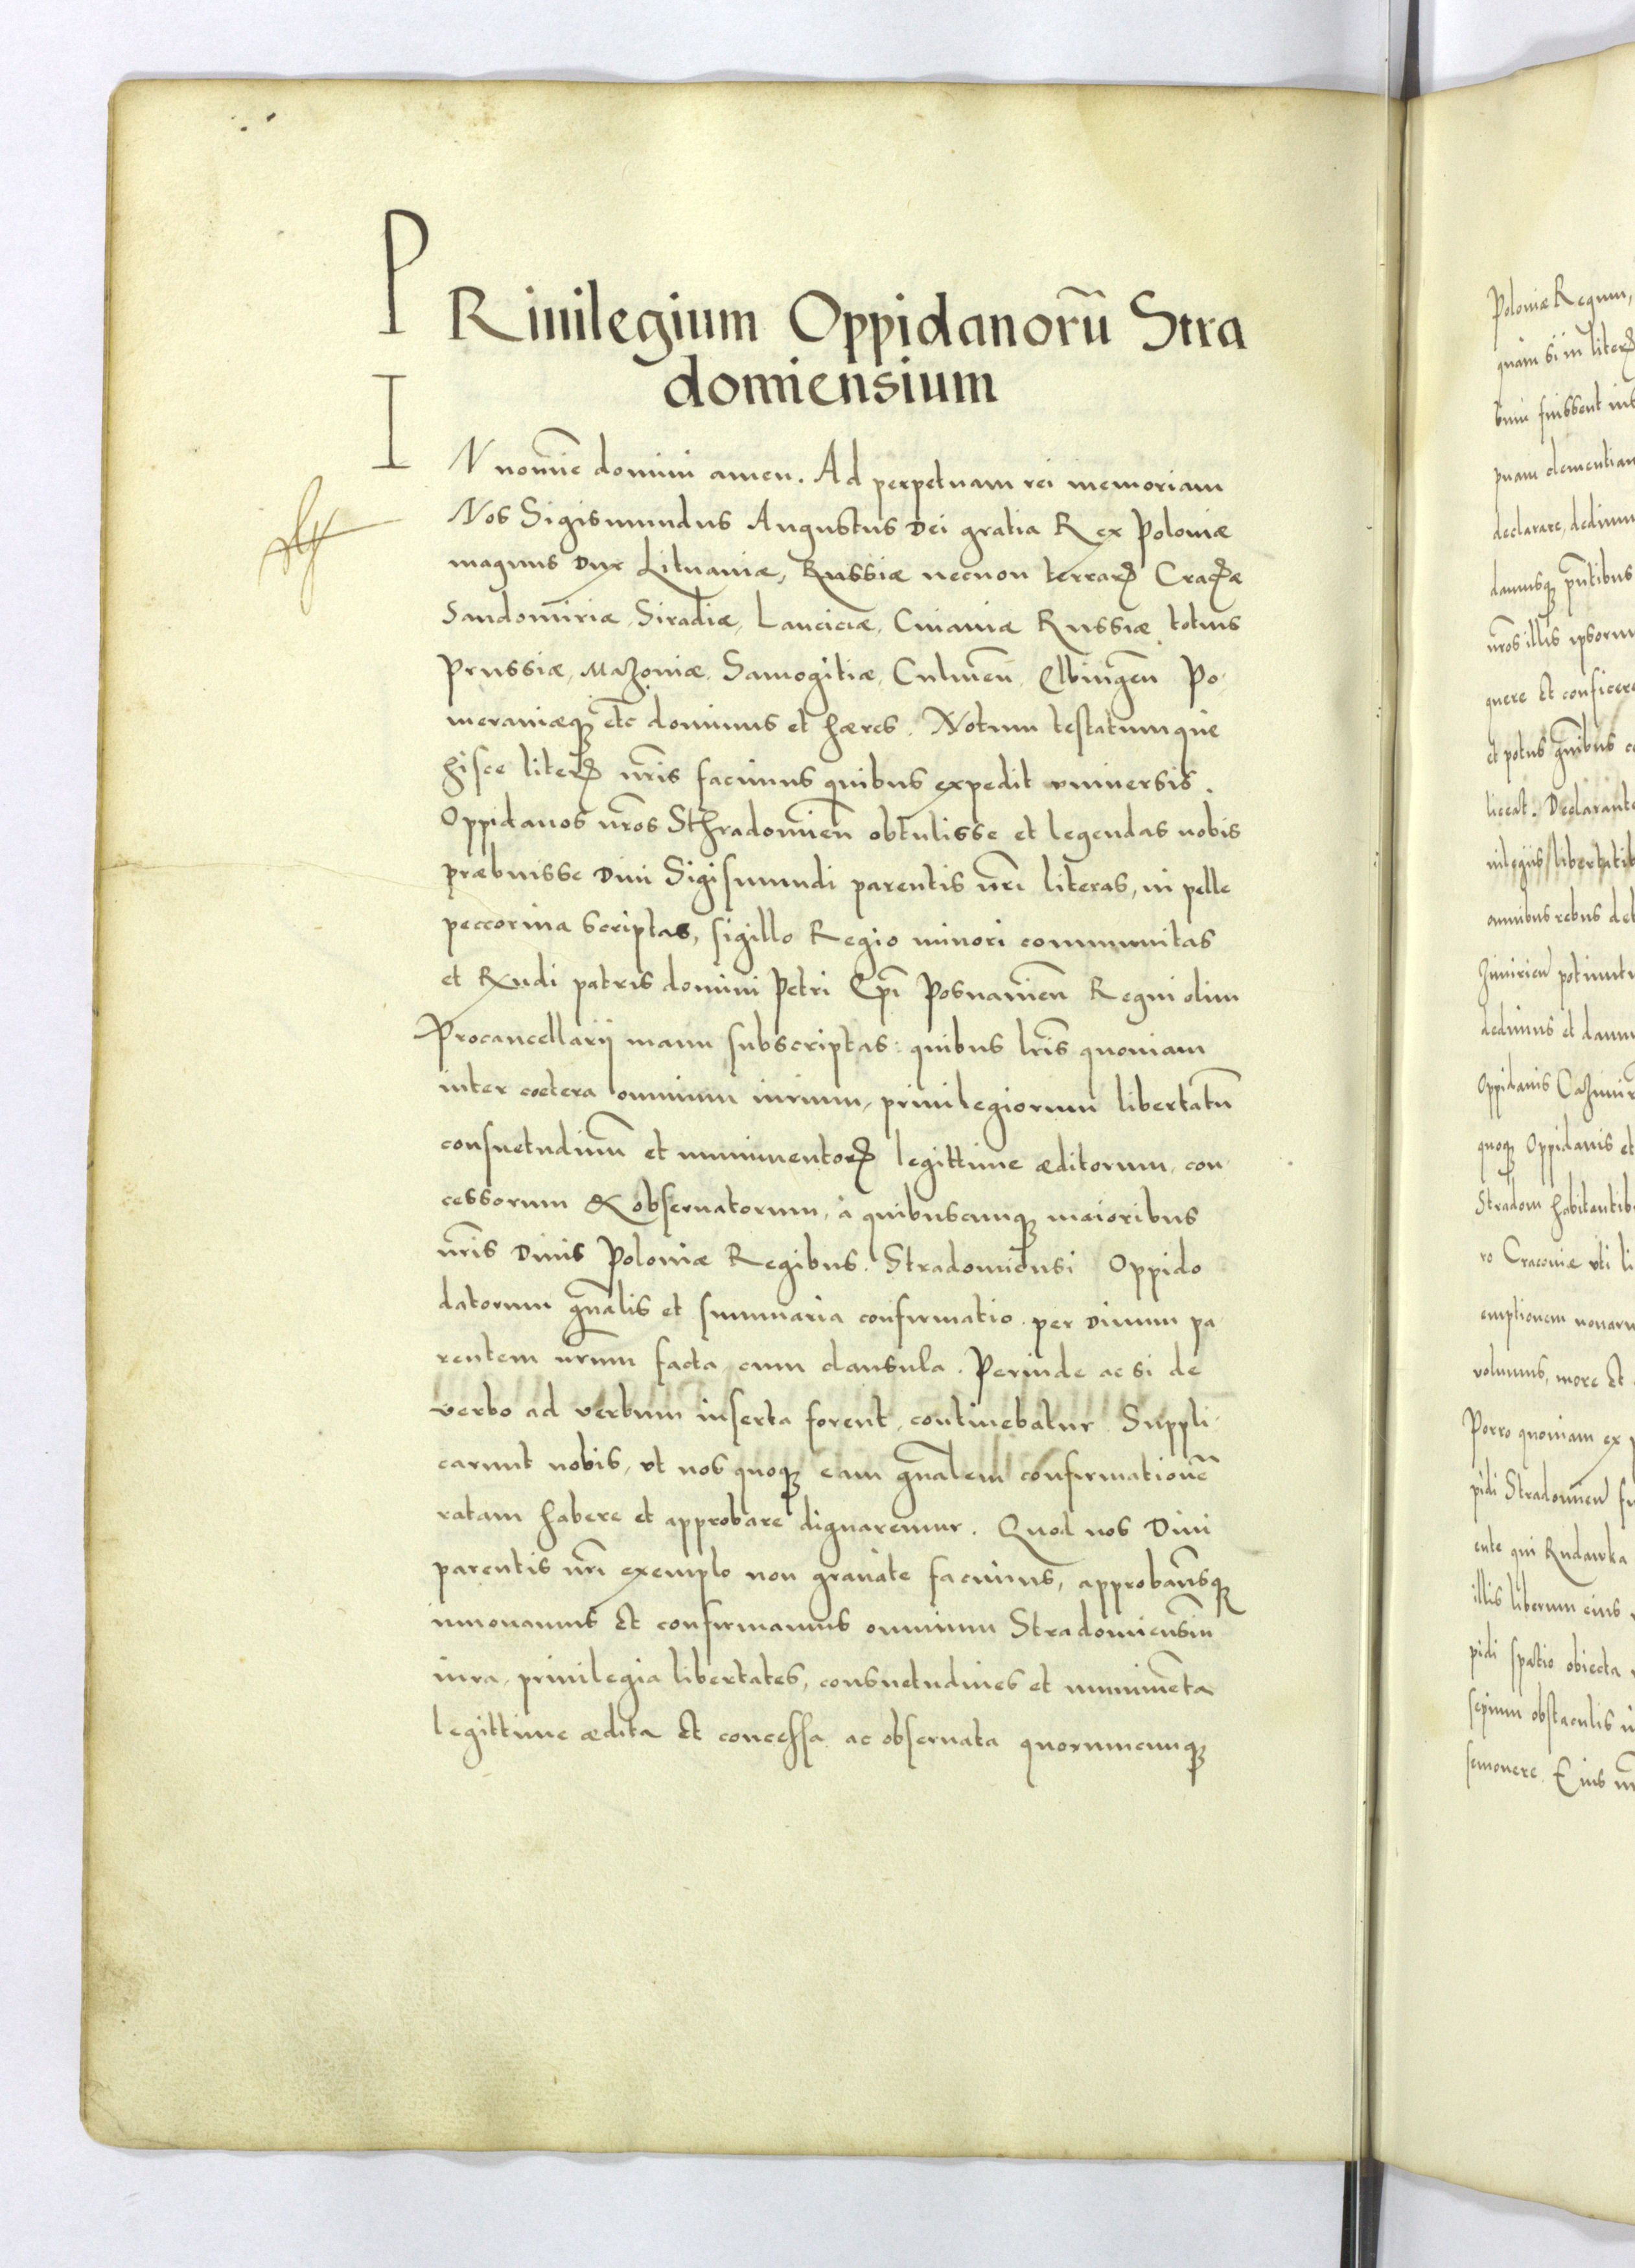 PRiuilegium Oppidanorũ Stra
domiensium
IN nomĩe domini amen. Ad perpetuam rei memoriam
Nos Sigismundus Augustus Dei gratia Rex Poloniæ
magnus Dux Lituaniæ, Russiæ necnon terrarꝝ Cracꝝæ
Sandomiriæ, Siradiæ, Lanciciæ, Cuiauiæ Russiæ totius
Prussiæ, Mazouiæ, Samogitiæ, Culmeñ, Elbingeñ Po-
meraniæqꝫ etc̃ dominus et hæres. Notum testatumque
hisce literꝝ nr̃is facimus quibus expedit vniuersis.
Oppidanos nr̃os Sthradomieñ obtulisse et legendas nobis
præbuisse Diui Sigismundi parentis nr̃i literas, in pelle
peccorina scriptas, sigillo Regio minori communitas
et Rñdi patris domini Petri Ep̃i Posnanieñ Regni olim
Procancellarij manu subscriptas: quibus lr̃is quoniam
inter cœtera omnium iurium, priuilegiorum libertatũ
consuetudinũ et munimentorꝝ legittime æditorum, con-
cessorum & obseruatorum, à quibuscunqꝫ maioribus
nr̃is Diuis Poloniæ Regibus. Stradomiensi Oppido
datorum gñalis et summaria confirmatio per Diuum pa-
rentem nr̃um facta cum clausula. Perinde ac si de
verbo ad verbum inserta forent, continebatur. Suppli-
carunt nobis, vt nos quoqꝫ eam gñalem confirmationẽ
ratam habere et approbare dignaremur. Quod nos Diui
parentis nr̃i exemplo non grauate facimus, approbam̃sqꝫ
innouamus et confirmamus omnium Stradomiensiũ
iura, priuilegia libertates, consuetudines et munimẽta
legittime ædita et concessa ac obseruata quorumcunqꝫ
Poloniæ Regum,
quam si in literꝝ
fuissent
declarare, dedimus
damusqꝫ pñtibus
nr̃os illis ipsorum
quere et conficere
et potus gñibus
liceat. Declarante
omnibus rebus
dedimus et damus
Oppidanis Cazimir
quoqꝫ Oppidanis et
Stradom habitantib
ro Cracouiæ vti li
emptionem
volumus, more et
Porro quoniam ex
pidi Stradomieñ
ente qui Rudawka
illis liberum eius
pidi spatio obiecta
sepium obstaculis
semouere. Eius